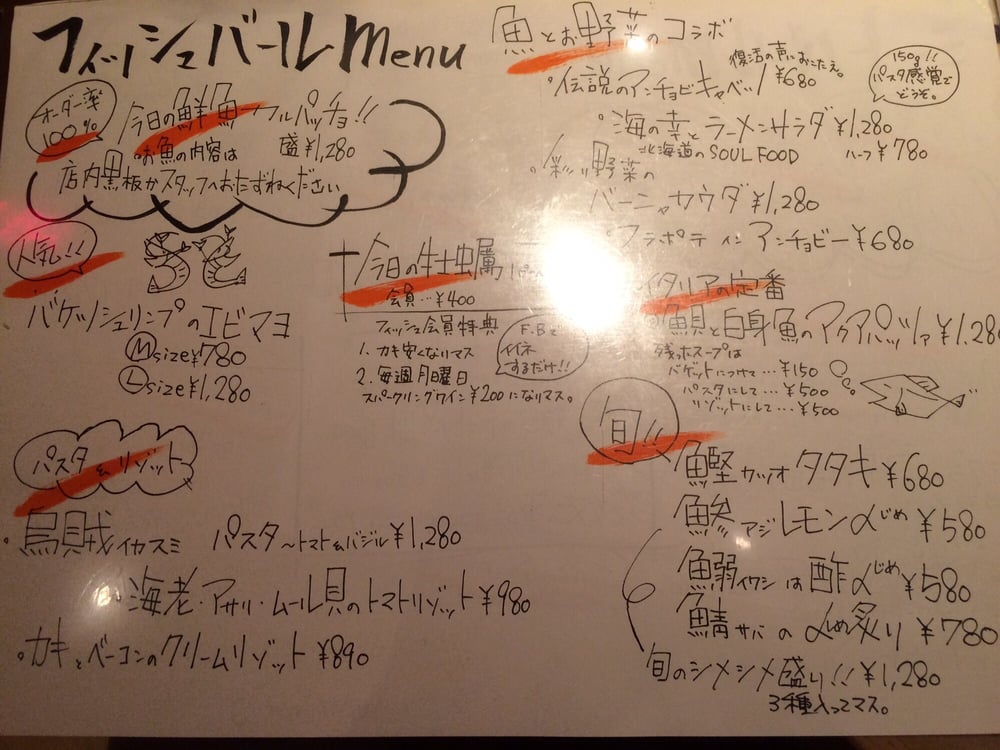 フィッシュバール Menu
オーダー率
100%
今日の鮮魚カルパッチョ!!
・お魚の内容は 盛¥1,280
店内黒板かスタッフへおたずねください
人気!!
バケツシュリンプのエビマヨ
Ⓜsize¥780
Ⓛsize¥1,280
今日の牡蠣
会員…¥400
フィッシュ会員特典
1. カキ安くなりマス
2. 毎週月曜日
スパークリングワイン¥200になりマス。
F.Bで
イイネ
するだけ!!
パスタ&リゾット
・烏賊イカスミ パスタ〜トマト&バジル¥1,280
・海老・アサリ・ムール貝のトマトリゾット¥980
・カキとベーコンのクリームリゾット¥890
魚とお野菜のコラボ
復活の声におこたえ。
・伝説のアンチョビキャベツ ¥680
150g!!
パスタ感覚で
どうぞ。
・海の幸とラーメンサラダ¥1,280
北海道のSOUL FOOD ハーフ¥780
・彩り野菜の
バーニャカウダ¥1,280
・フラポテ イン アンチョビー¥680
イタリアの定番
・魚貝と白身魚のアクアパッツァ¥1,280
残ったスープは
バゲットにつけて…¥150
パスタにして…¥500
リゾットにして…¥500
旬!!
鰹カツオタタキ¥680
鯵アジレモン〆じめ¥580
鰯イワシは酢〆じめ¥580
鯖サバの〆め炙り¥780
旬のシメシメ盛り!!¥1,280
3種入ってマス。